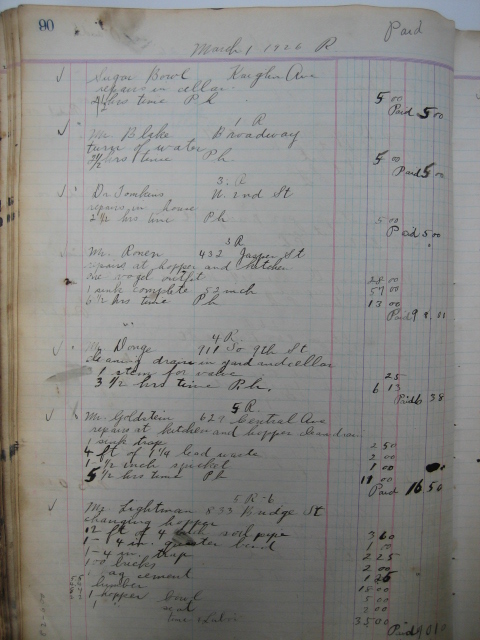 90
Paid
March 1 1926 R
Sugar Bowl Haighn Ave
repairs in cellar
2 1/2 hrs time Ph 5 00
Paid 5 00
1 R
Mr Blake Broadway
turn of water
2 1/2 hrs time Ph 5 00
Paid 5 00
3. R
Dr Tomkins N. 2nd St
repairs in house
2 1/2 hrs time Ph 5 00
Paid 5 00
3 R
Mr. Ronen 432 Jasper St
repairs at hopper and kitchen
one vogel outfit 28 00
1 sink complete 52 inch 57 00
6 1/2 hrs time Ph 13 00
Paid
4 R
Mr. Donge 711 So 9th St
cleaning drain in yard and cellar
1 stem for valve 25
3 1/2 hrs time Ph. 6 13
Paid 6 38
5 R.
Mr. Goldstein 627 Central Ave
repairs at kitchen and hopper
1 sink trap 2 50
4 ft of 1 1/4 lead waste 2 00
1 - 1/2 inch spicket 1 00
5 1/2 hrs time Ph 11 00
Paid 16 50
5 R-6
Mr Lightman 833 Bridge St
changing hopper
12 ft of 4 inch soil pipe 3 60
1 - 4 in. quarter bend 1 00
1 - 4 in. trap 2 25
100 bricks 2 00
bag cement
lumber 18 00
1 hopper bowl 5 00
1 seat 2 00
time & labor 35 00
Paid